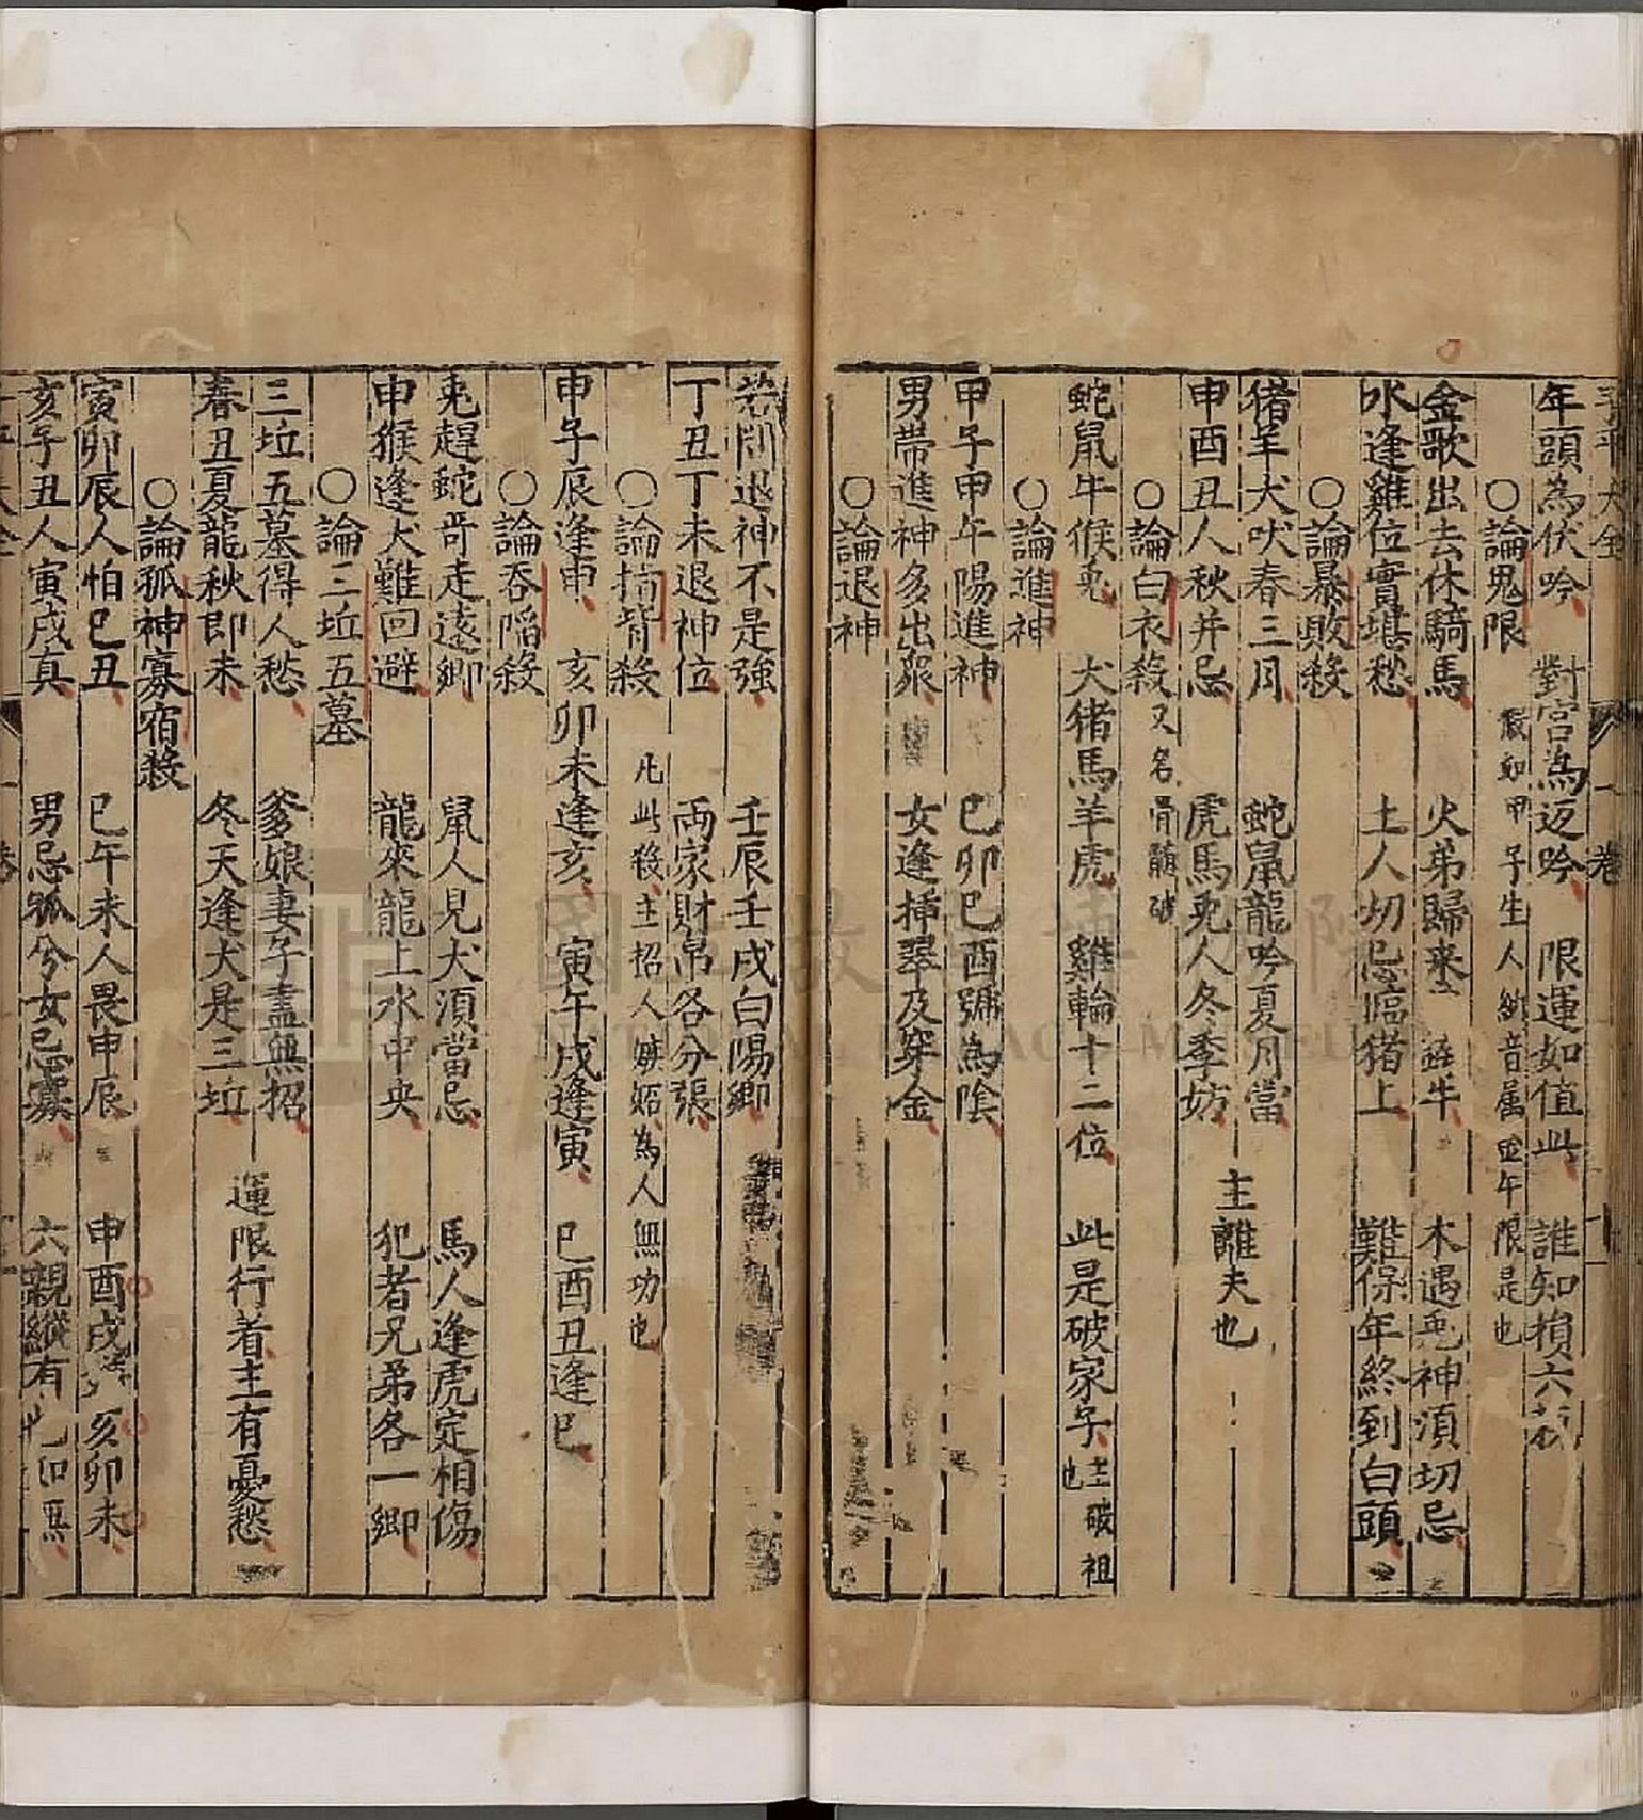 年頭為伏吟　對宮為返吟　限運如值此　誰知損六
○論鬼限　假如甲子生人納音属金午限是也
金歌出去休騎馬　火弟歸来　牛　木遇兎神須切忌
水逢雞位實堪愁　土人切忌臨猪上　難保年終到白頭
○論暴敗殺
猪羊犬吠春三月　蛇鼠龍吟夏月當
申酉丑人秋并忌　虎馬兎人冬季妨
主離夫也
○論白衣殺　又名骨髓破
蛇鼠牛猴兎　犬猪馬羊虎　雞輪十二位　此是破家子　主破祖也
○論進神
甲子甲午陽進神　己卯己酉號為陰
男帶進神多出眾　女逢挿翠及穿金
○論退神
若問退神不是強　壬辰壬戌白陽鄉
丁丑丁未退神位　両家財帛各分張
○論指背殺　凡此殺主招人嫉妬為人無功也
申子辰逢申　亥卯未逢亥　寅午戌逢寅　巳酉丑逢巳
○論吞陷殺
兎趕蛇哥走遠鄉　鼠人見犬須當忌　馬人逢虎定相傷
申猴逢犬難回避　龍來龍上水中央　犯者兄弟各一鄉
○論三坵五墓
三坵五墓得人愁　爹娘妻子盡無招
春丑夏龍秋即未　冬天逢犬是三坵
運限行着主有憂愁
○論孤神寡宿殺
寅卯辰人怕巳丑　巳午未人畏申辰　申酉戌　亥卯未
亥子丑人寅戌真　男忌孤兮女忌寡　六親縱有